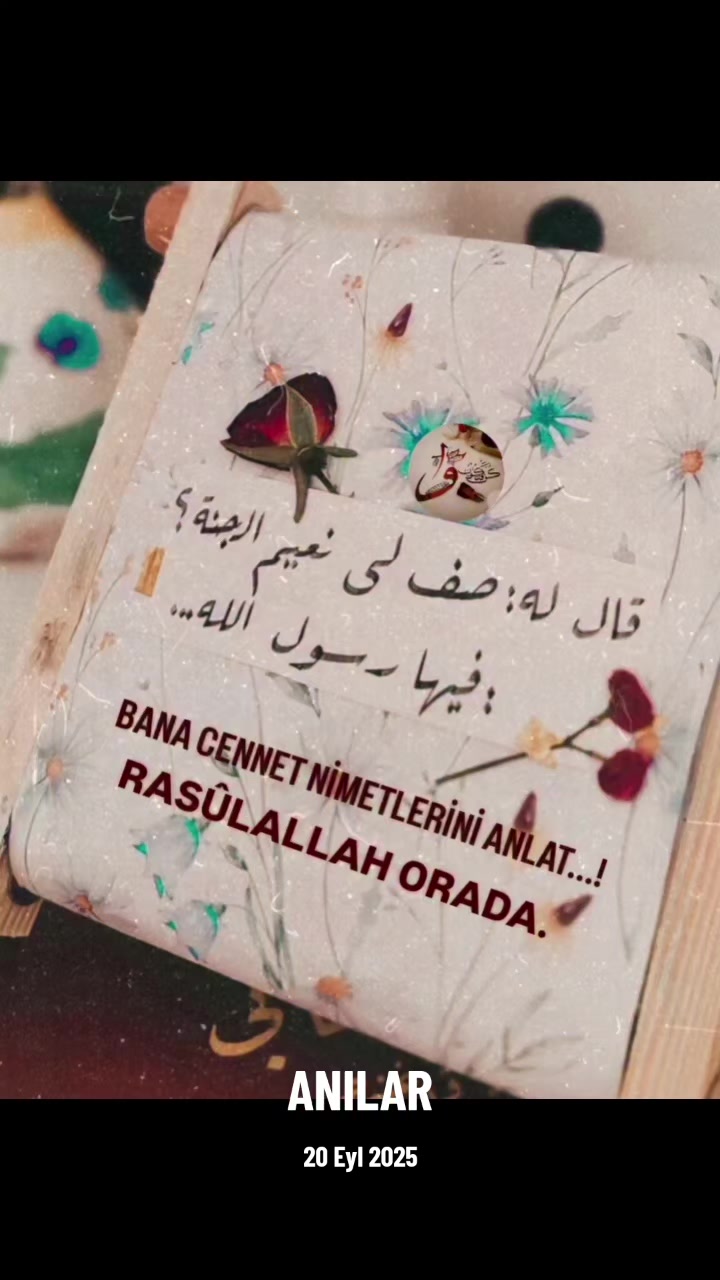 قال له: صف لي نعيم الجنة؟
: فيها رسول الله...
BANA CENNET NİMETLERİNİ ANLAT...!
RASÛLALLAH ORADA.
ANILAR
20 Eyl 2025